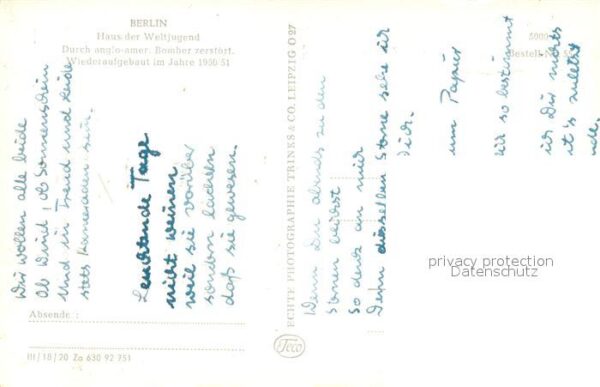 BERLIN
Haus der Weltjugend
Durch anglo-amer. Bomber zerstört.
Wiederaufgebaut im Jahre 1950/51
Wir wollen alle beide
Ob Wind, ob Sonnenschein
Und in Freud und Leide
stets Kameraden sein.
Leuchtende Tage
nicht weinen
weil sie vorüber
sondern lächeln
daß sie gewesen.
Absender:
III/18/20 Za 630 92 751
ECHTE PHOTOGRAPHIE TRINKS & CO. LEIPZIG O 27
Teco
5000
Bestell-Nr.
Wenn Du abends zu den
Sternen
So denk an mir
Denn dieselben Sterne sehe ich
Dich.
um Papier
wir so bestimmt
ich Dir nichts
it's zuletzt
privacy protection
Datenschutz